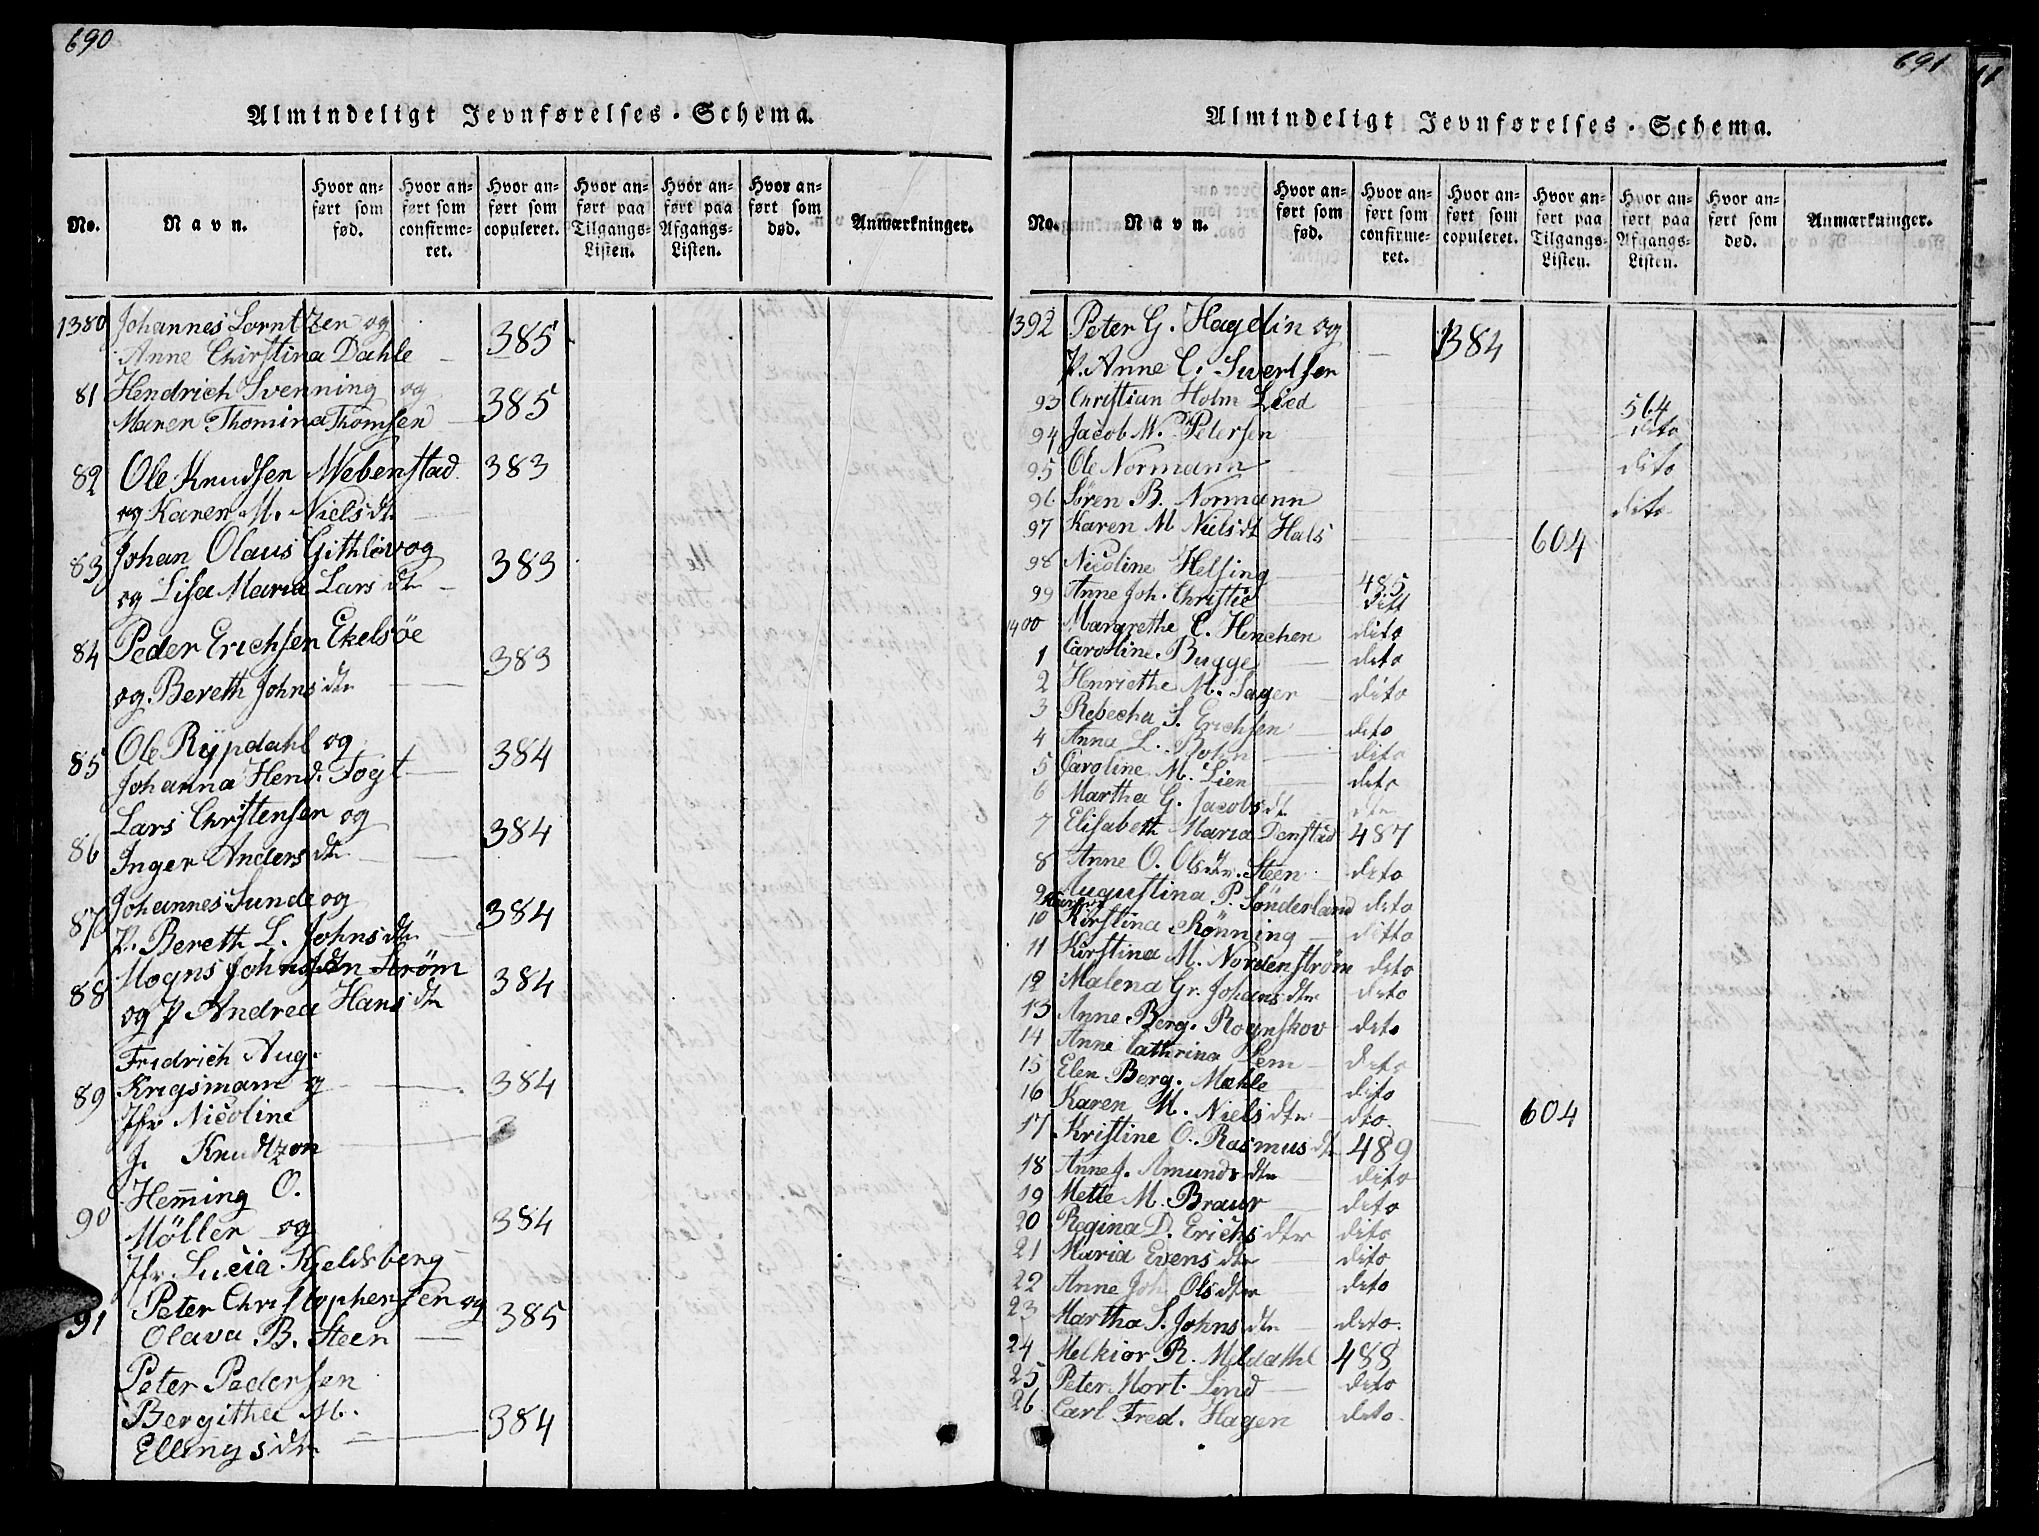 690
Almindeligt Jevnførelses-Schema.
No.
Navn.
Hvor anført som fød.
Hvor anført som confirmeret.
Hvor anført som copuleret.
Hvor anført paa Tilgangs-Listen.
Hvor anført paa Afgangs-Listen.
Hvor anført som død.
Anmærkninger.
1380 Johannes Lorntzen og
Anne Chirstina Dahle 385
81 Hendrich Svenning og
Maren Thomina Thomsen 385
82 Ole Knudsen Mebenstad 383
og Karen M. Nielsdtr
83 Johan Olaus Githlöv og
og Lisa Maria Larsdtr 383
84 Peder Erichsen Ekelsöe
og Bereth Johnsdtr 383
85 Ole Rÿpdahl og
Johanna Hend. Fogt 384
86 Lars Christensen og
Inger Andersdtr 384
87 Johannes Sunde og
P. Bereth L. Johnsdtr 384
88 Mogns Johnsen Strøm
og P Andrea Hansdtr 384
Fridrich Aug.
89 Krigsmann og 384
Jfr Nicoline
J. Knudtzon
Hem̄ing O.
90 Möller og 384
Jfr. Lucia Kjeldsberg
91 Peter Christophersen og
Olava B. Steen 385
Peter Pedersen
Bergitha M. 384
Ellingsdtr
691
Almindeligt Jevnførelses-Schema.
No.
Navn.
Hvor anført som fød.
Hvor anført som confirmeret.
Hvor anført som copuleret.
Hvor anført paa Tilgangs-Listen.
Hvor anført paa Afgangs-Listen.
Hvor anført som død.
Anmærkninger.
1392 Peter G. Hagelin og 384
P. Anne C. Sivertsen
93 Christian Holm Lied 564
94 Jacob M. Petersen dito
95 Ole Normann dito
96 Søren B. Normann dito
97 Karen M Nielsdt Hals 604
98 Nicoline Helsing 485
99 Anne Joh. Christie dito
1400 Margrethe C. Hinchen dito
1 Caroline Bugge dito
2 Henriethe M. Sager dito
3 Rebecha S. Erichsen dito
4 Anna L. Botn dito
5 Caroline M. Lien dito
6 Martha G. Jacobsdtr
7 Elisabeth Maria Denstad 487
8 Anne O. Olsdtr. Steen dito
9 Augustina P. Sönderland dito
10 Kirstina Rönning ditto
11 Kirstina M. Nordenström dito
12 Malena Gr. Johansdtr dito
13 Anne Berg. Rognskov dito
14 Anne Cathrina Lem dito
15 Elen Berg. Mæhle dito
16 Karen M. Nielsdtr dto 604
17 Kristine O. Rasmusdtr 489
18 Anne J. Amundsdtr dito
19 Mette M. Braur dito
20 Regina D. Erichsdtr dito
21 Maria Evensdtr dito
22 Anne Joh Olsdtr dito
23 Martha S. Johnsdtr dito
24 Melkior R. Meldahl 488
25 Peter Mort. Lind dito
26 Carl Fred. Hagen dito